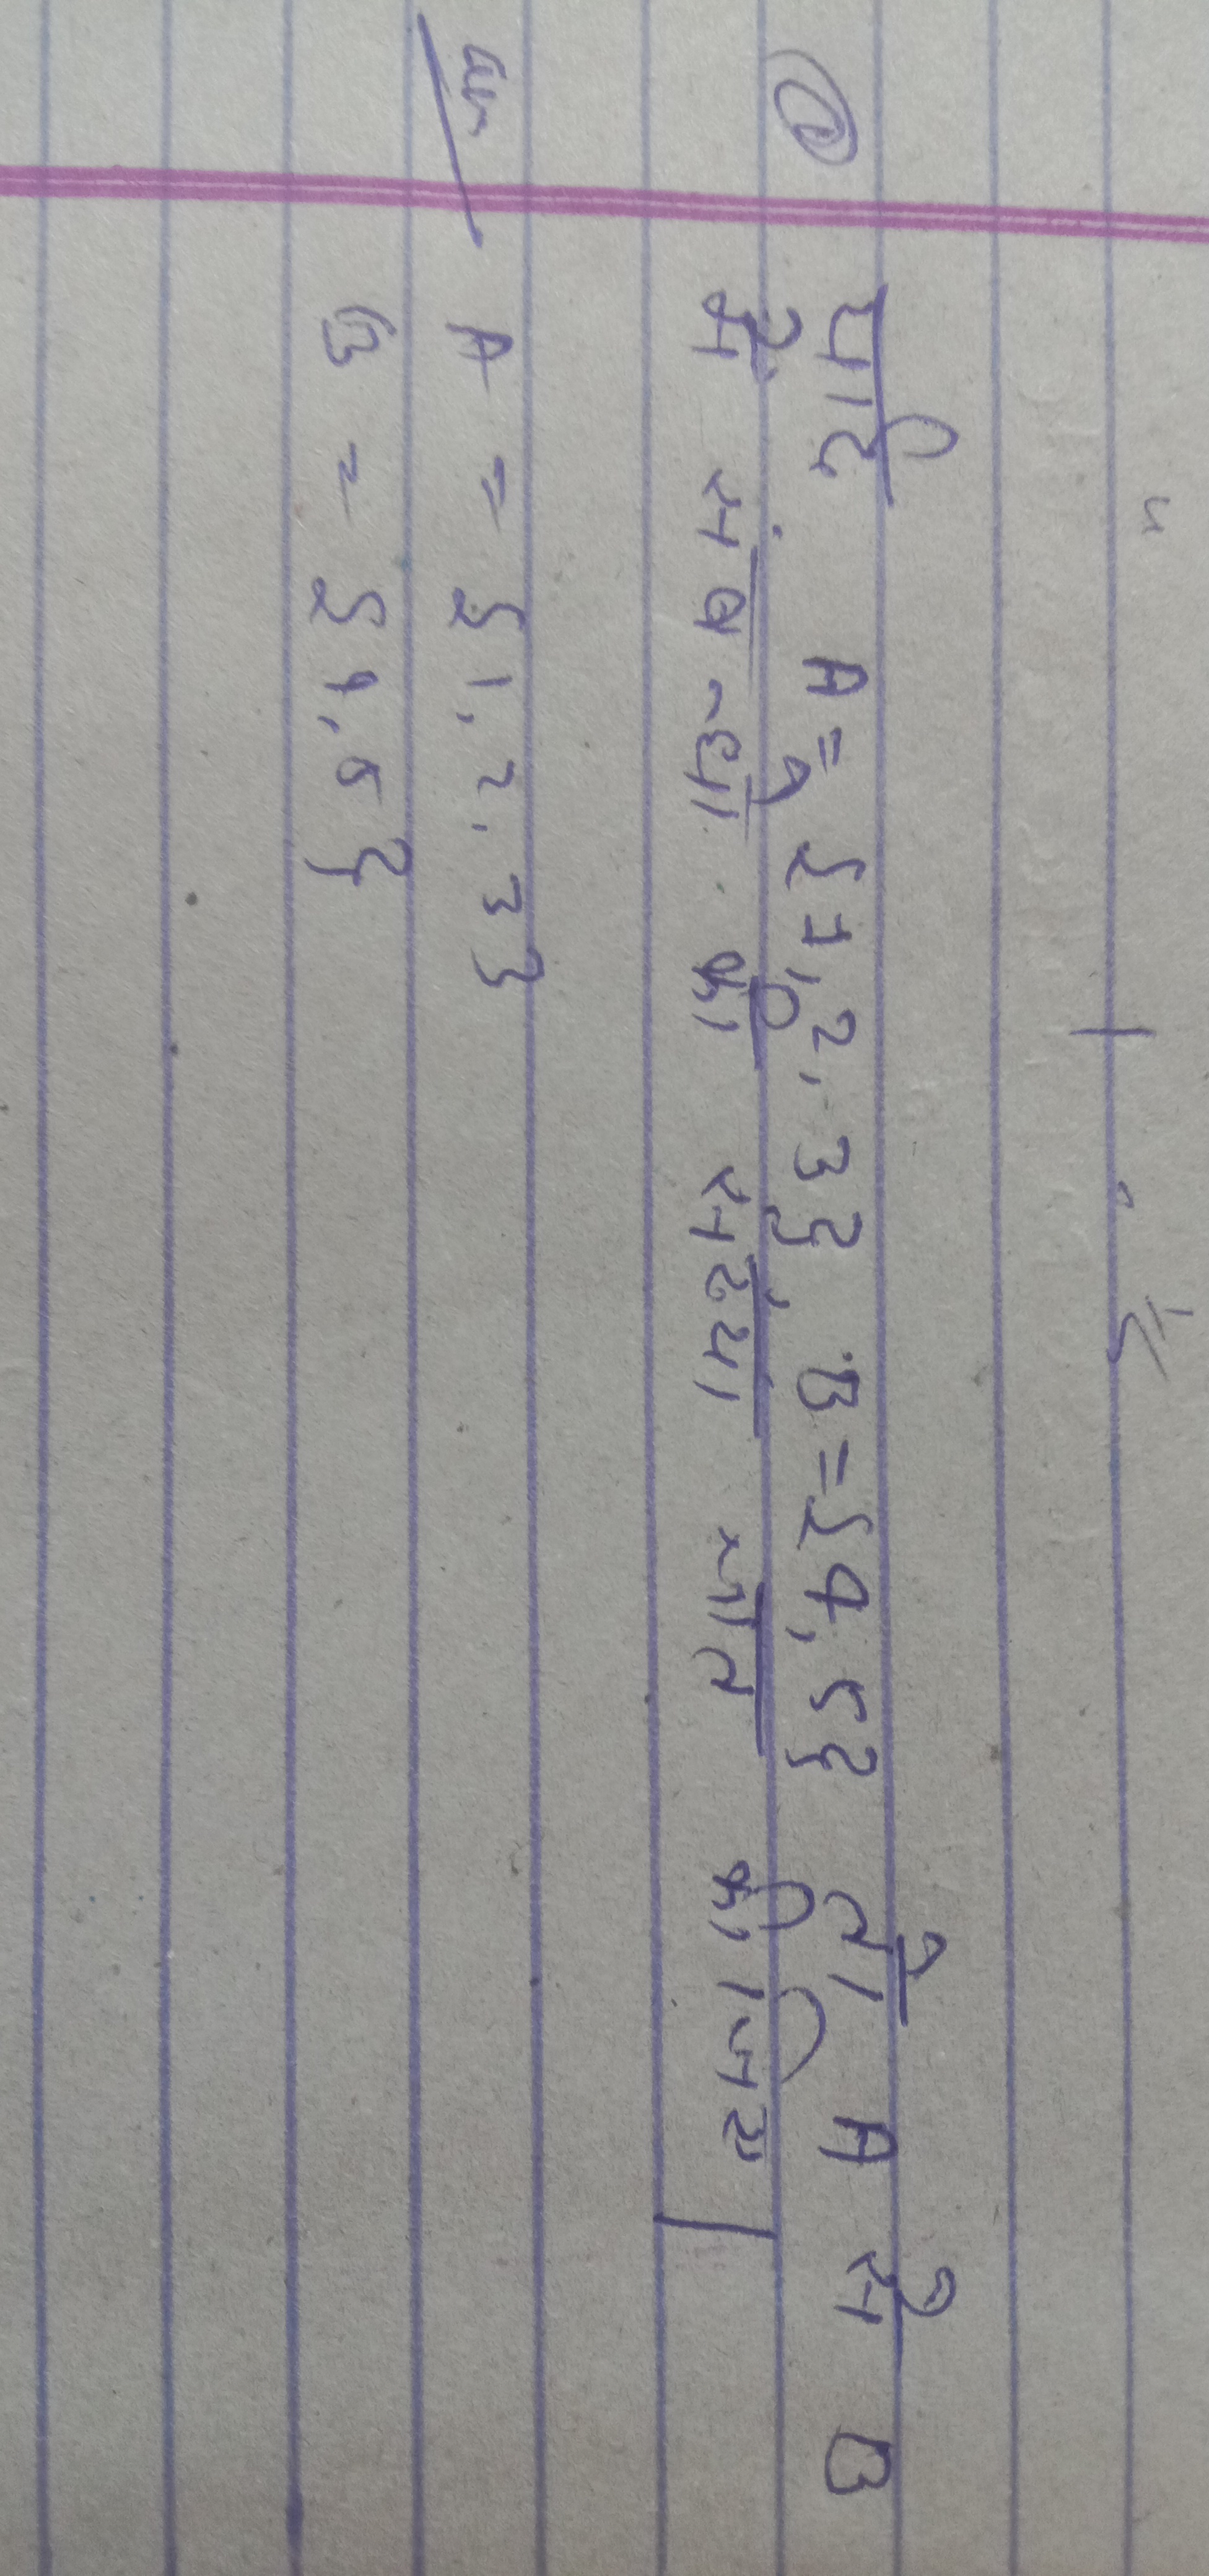 ① यदि A = {1, 2, 3}, B = {4, 5} तो A से B
में संबन्धों की संख्या ज्ञात कीजिये।
A = {1, 2, 3}
B = {4, 5}